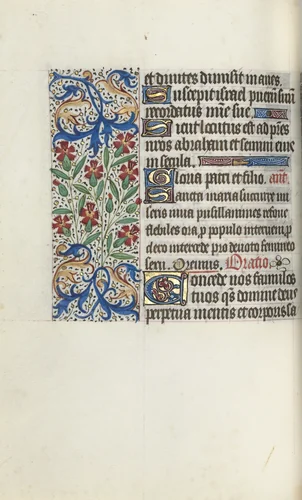 et diuites dimisit inanes.
Suscepit israel puerum suum
recordatus misericordie sue
Sicut locutus est ad patres
nros abraham et semini eius
in secula.
Gloria patri et filio. ant.
Sancta maria succurre mi
seris iuua pusillanimes refoue
flebiles ora pro populo interueni pro
clero intercede pro deuoto femineo
sexu. Oremus. Oratio
Concede nos famulos
tuos qs domine deus
perpetua mentis et corporis sa